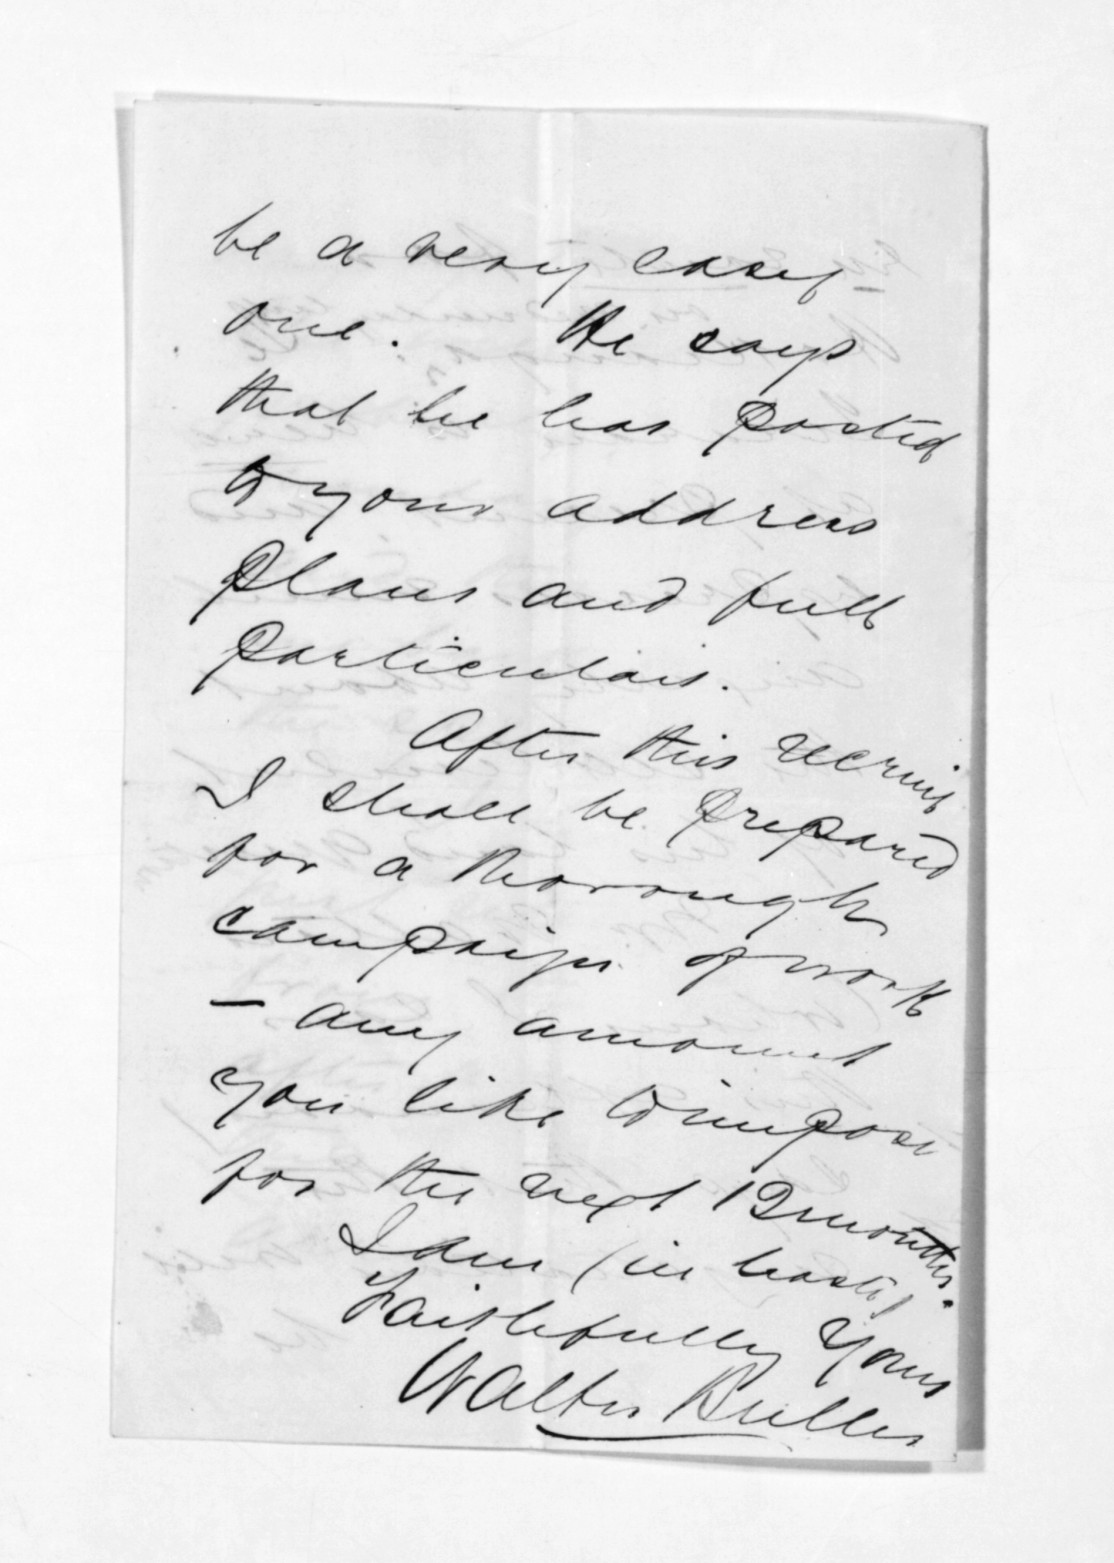 be a very easy
one. He says
that he has posted
to your address
plans and full
particulars.
After this recruit
I shall be prepared
for a thorough
campaign of work
— any amount
you like to impose
for the next 12 months.
I am (in haste)
Faithfully Yours
Walter Buller